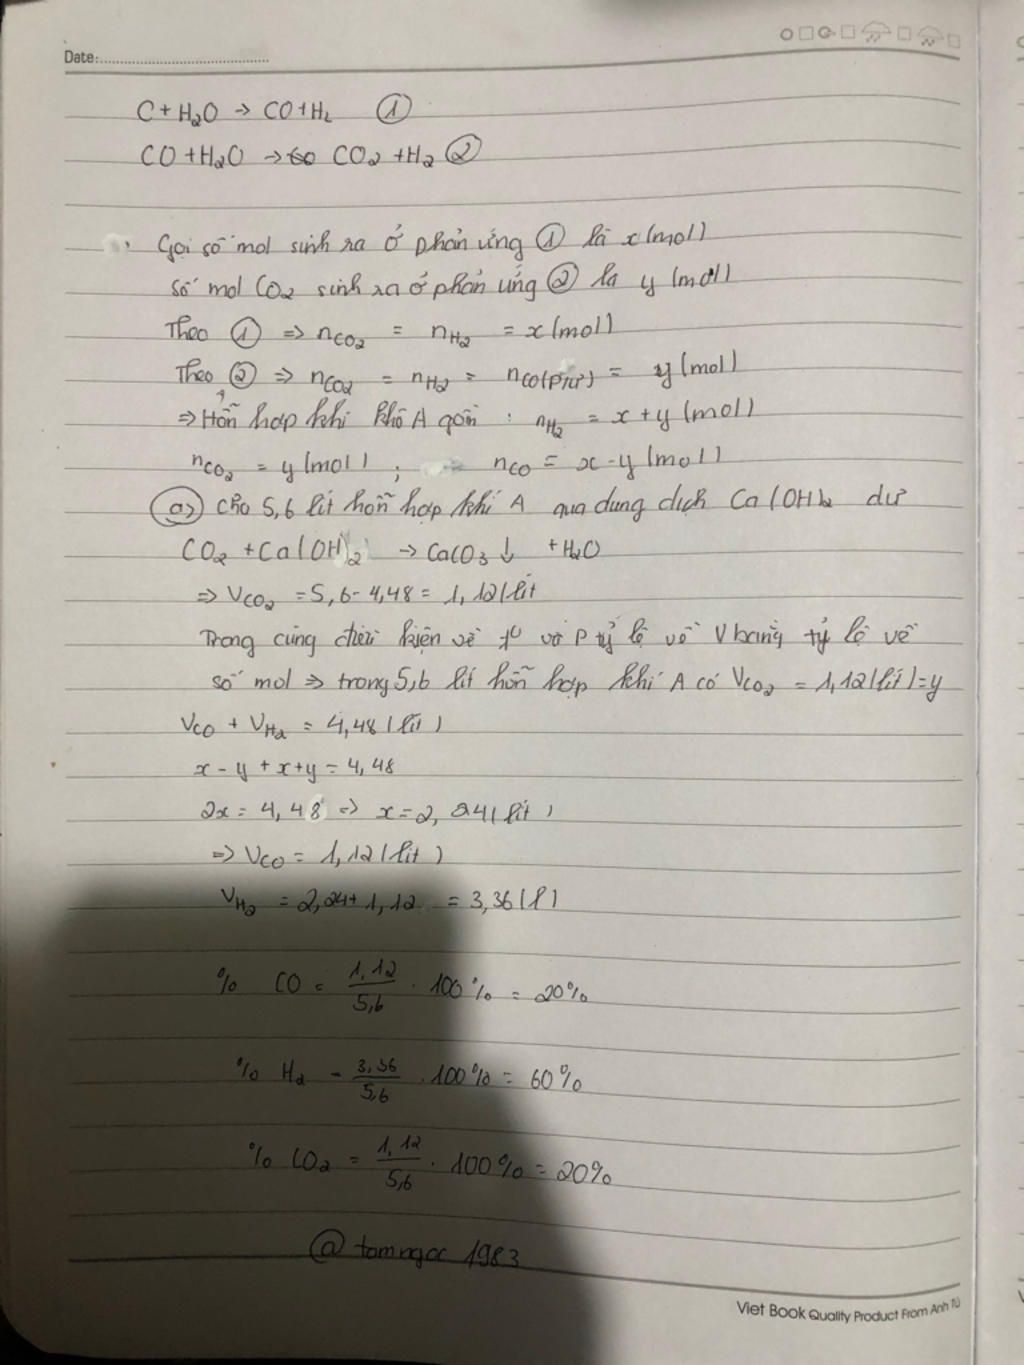 Date:
C + H₂O → CO + H₂ ①
CO + H₂O → CO₂ + H₂ ②
Gọi số mol sinh ra ở phản ứng ① là x (mol)
Số mol CO₂ sinh ra ở phản ứng ② la y (mol)
Theo ① => nCO₂ = nH₂ = x (mol)
Theo ② => nCO₂ = nH₂ = nCO(pứ) = y (mol)
=> Hỗn hợp khí khô A gồm : nH₂ = x + y (mol)
nCO₂ = y (mol) ; nCO = x - y (mol)
a) Cho 5,6 lít hỗn hợp khí A qua dung dịch Ca(OH)₂ dư
CO₂ + Ca(OH)₂ → CaCO₃ ↓ + H₂O
=> VCO₂ = 5,6 - 4,48 = 1,12 (lít
Trong cùng điều kiện về t⁰ và P tỷ lệ về V bằng tỷ lệ về
số mol => trong 5,6 lít hỗn hợp khí A có VCO₂ = 1,12 (lít) = y
VCO + VH₂ = 4,48 (lít)
x - y + x + y = 4,48
2x = 4,48 => x = 2,24 (lít)
=> VCO = 1,12 (lít)
VH₂ = 2,24 + 1,12 = 3,36 (l)
% CO = 1,12/5,6 . 100% = 20%
% H₂ = 3,36/5,6 . 100% = 60%
% CO₂ = 1,12/5,6 . 100% = 20%
@tamngoc 1983
Viet Book Quality Product From Anh Tú